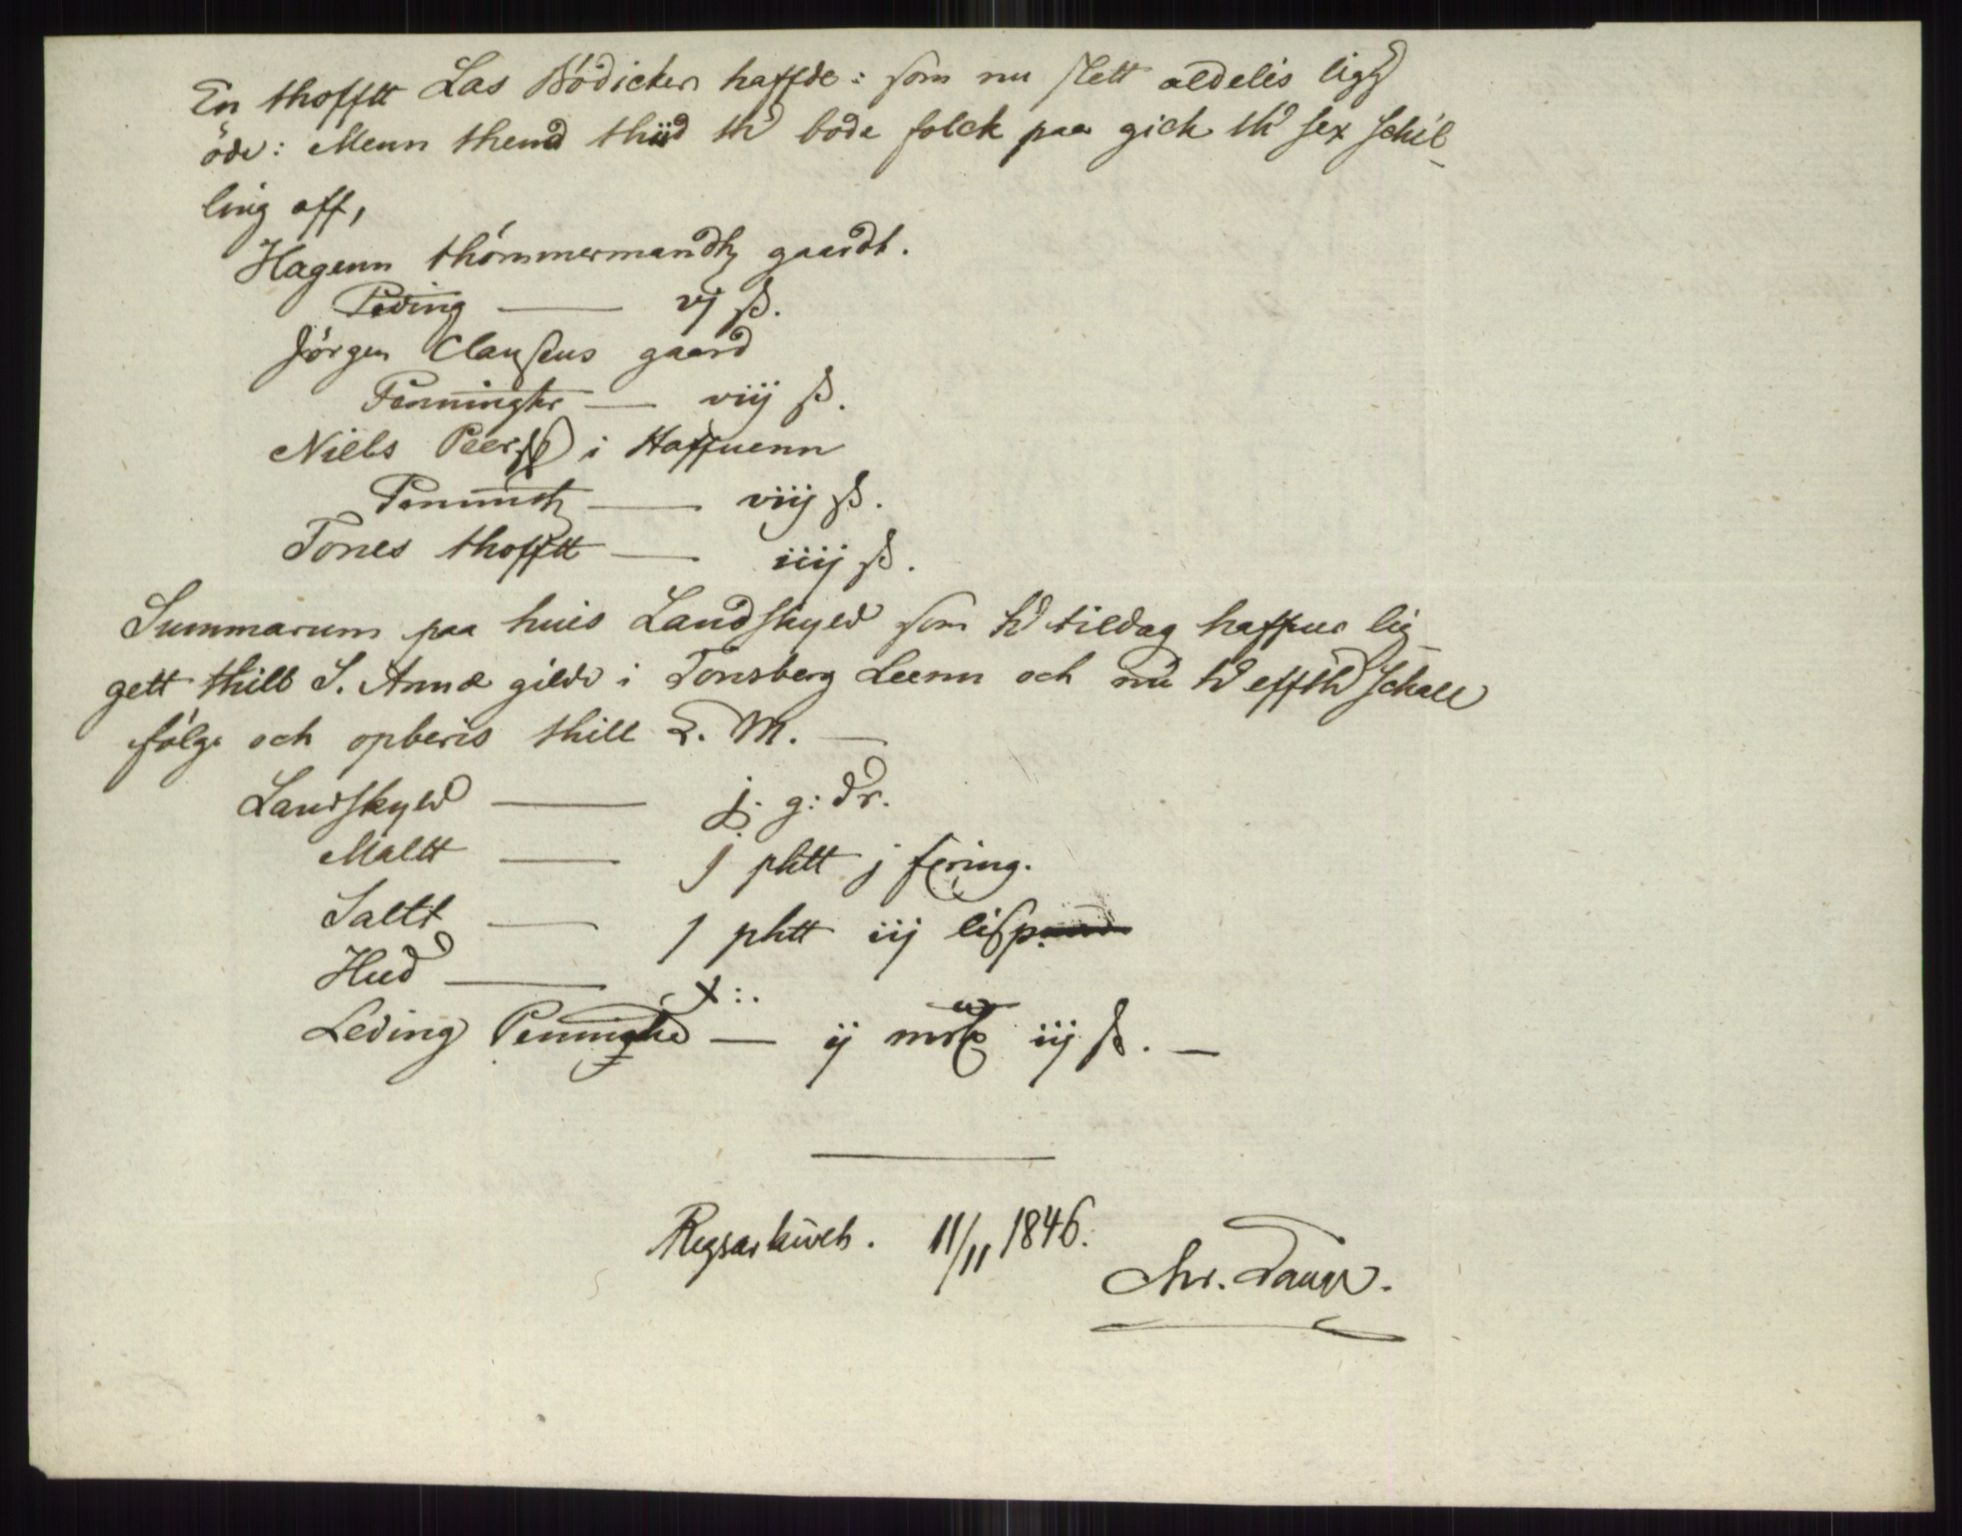 En thofftt Las Bödicker haffde: som nu slett aldelis ligg
öde: Menn thend thiid th bode folck paa gick th sex schil-
ling aff,
Hagenn thömmermandtz gaardt.
Peding — vj ß.
Jörgen Clausens gaard
Penningher — viij ß.
Niels Peerss i Haffuenn
Penningh — viij ß.
Tones thofftt — iiij ß.
Summarum paa huis Landskyld som h tildag haffuer lig-
gett thill S. Annæ gilde i Tönsberg Leenn och nu h effth schall
fölge och opberis thill K. M. —
Landskyld — j. g: dr.
Maltt — j phtt j fering.
Saltt — j phtt iij lisp.
Hud — x:.
Leding Penninghe — ij mrk iij ß. —
Rigsarkivet. 11/11 1846.
Chr. Lange.